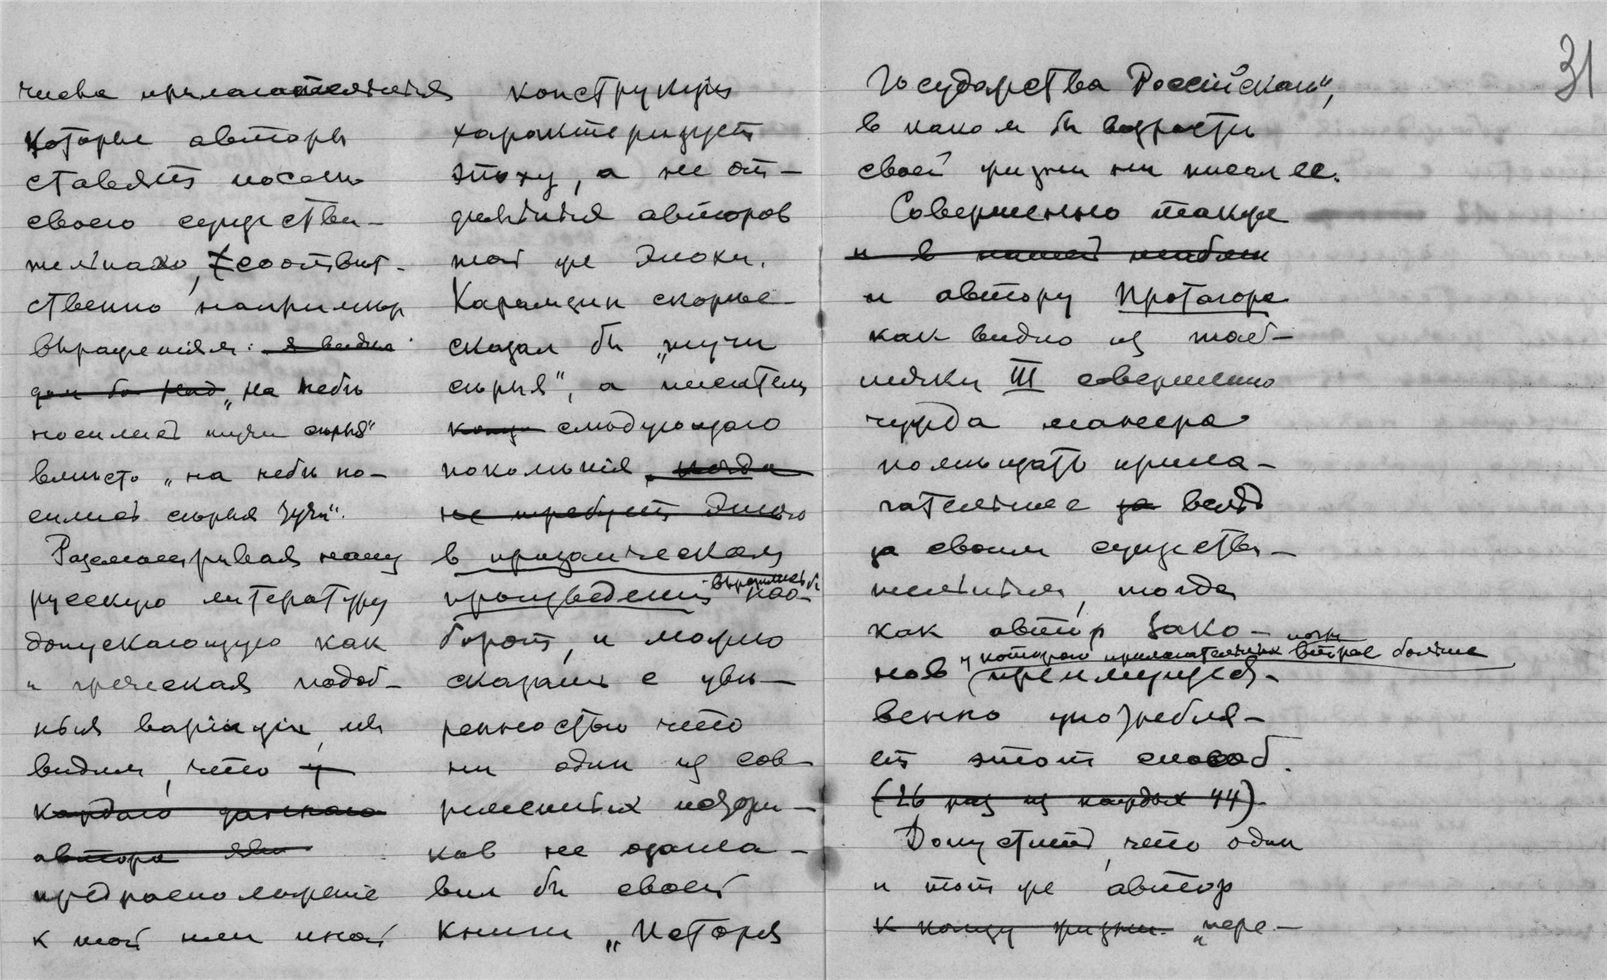 числа прилагательныя
которые авторы
ставятъ после
своего существи-
тельнаго, соответ-
ственно напримеръ
выраженіям: я видел
дом бы над „на небѣ
носились тучи сѣрыя“
вместо „на небѣ но-
сились сѣрыя тучи“.
Разсматривая нашу
русскую литературу
допускающую как
и греческая подоб-
ныя варіаціи, мы
видим, что у
каждаго даннаго
автора
предрасположеніе
к той или иной
конструкціи
характеризуетъ
эпоху, а не от-
дѣльныя авторов
той же эпохи.
Карамзин скорѣе
сказал бы „тучи
сѣрыя“, а писатель
конца слѣдующаго
поколѣнія, когда
не требуетъ этого
в прозаическом
произведеніи выразился бы нао-
борот, и можно
сказать с увѣ-
ренностью что
ни один из сов-
ременных истори-
ков не озагла-
вил бы своей
книги „Исторія
31
Государства Россійскаго“,
в каком бы возрастѣ
своей жизни ни писал ее.
Совершенно также
и в нашей
и автору Протагора
как видно из таб-
лички III совершенно
чужда манера
помѣщать прила-
гательное за вслѣд
за своим существи-
тельным, тогда
как автор Зако-
нов у котораго прилагательных почти втрое больше преимущест-
венно употребля-
ет этот способ.
(26 раз из каждых 44).
Допустим, что один
и тот же автор
к концу жизни „пере-